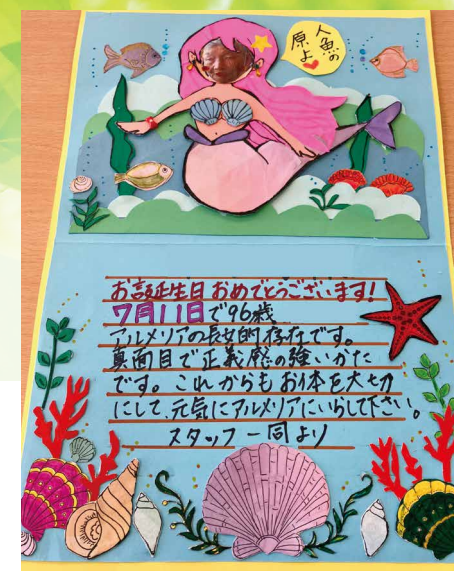 人魚の
原よ♥
お誕生日おめでとうございます!
7月11日で96歳
アルメリアの長女的存在です。
真面目で正義感の強いかた
です。これからもお体を大切
にして、元気にアルメリアにいらして下さい。
スタッフ一同より